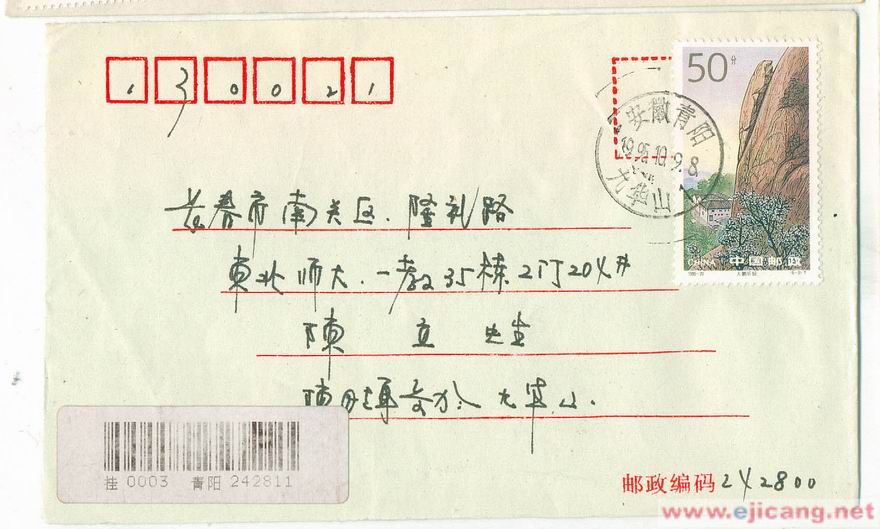 130021
50分
安徽青阳
1995.10.9.8
九华山
长春市南关区.隆礼路
東北师大.一教35栋2门204号
中国邮政
CHINA
陳 立 先生
九华山.
挂 0003 青阳 242811
邮政编码 242800
www.ejicang.net